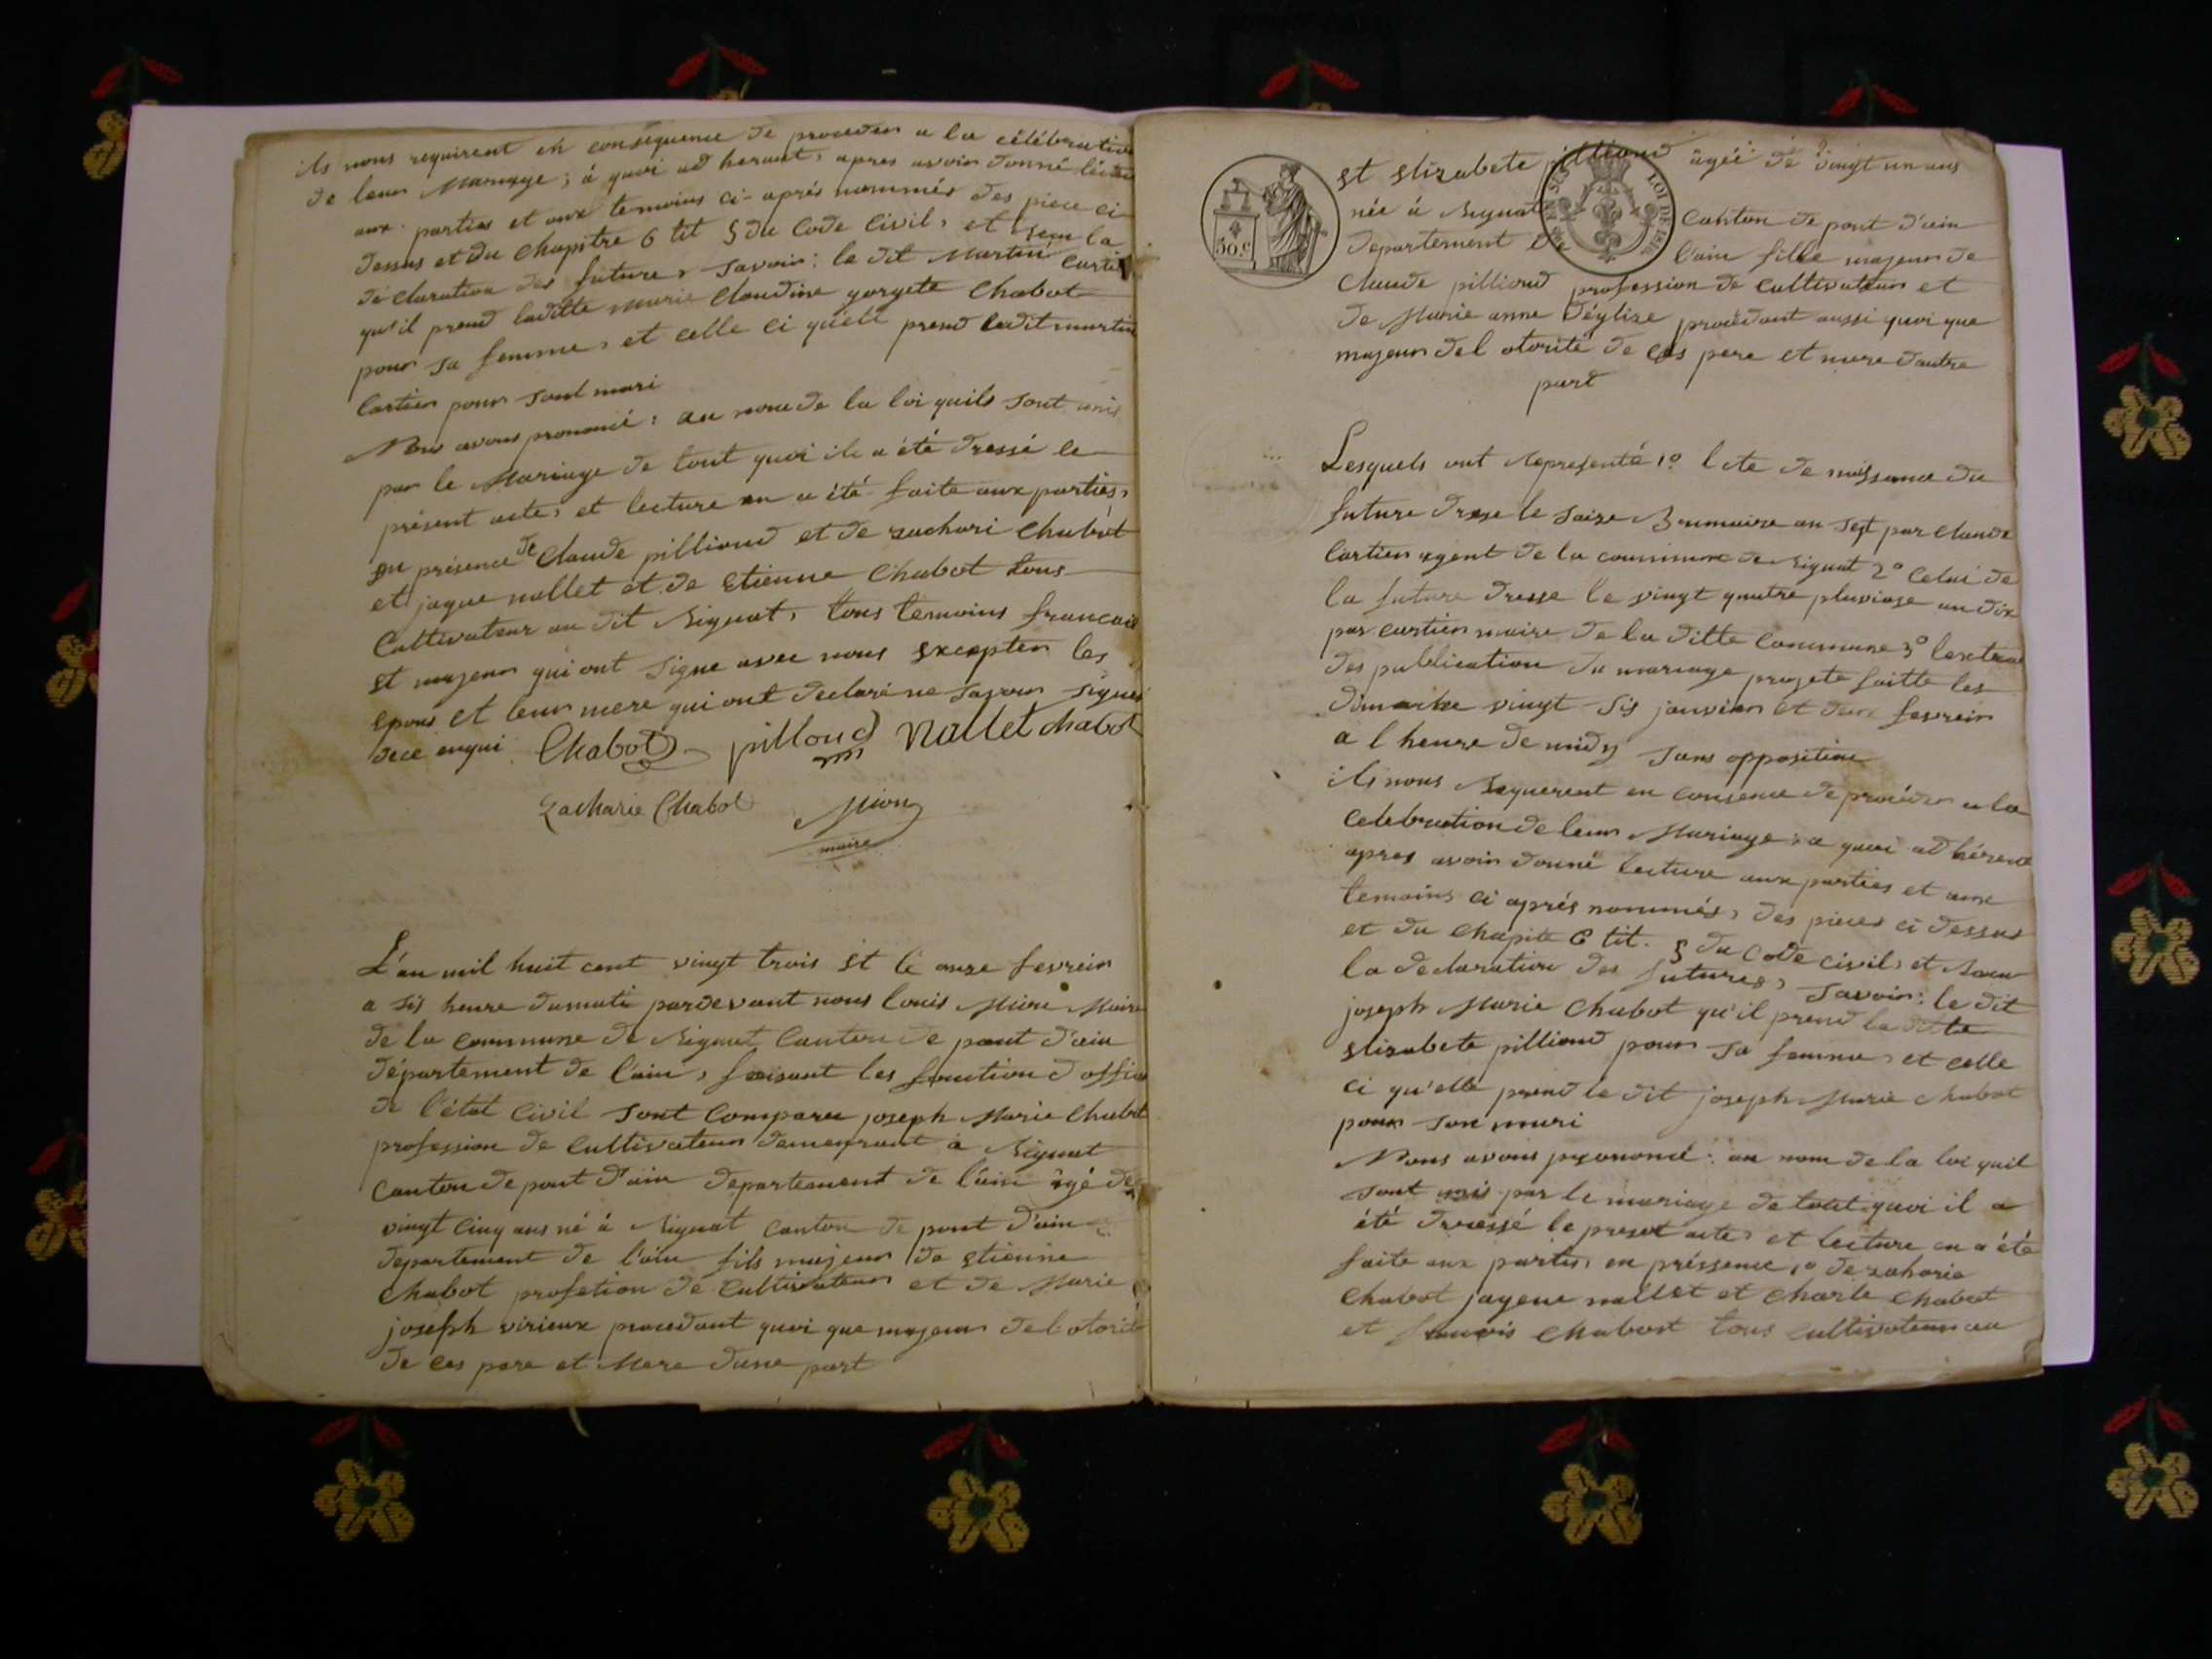 ils nous requirent en consequence de proceder a la célébration
de leur Mariage; à quoi ad herant, apres avoir donné léctur
aux parties et aux temoins ci-aprés nommés des piece ci
dessus et du Chapitre 6 tit 5 du Code Civil, et recu la
déclaration des future, savoir: le dit Martin Cartier
qu'il prend laditte Marie Claudine gorgete Chabot
pour sa femme, et celle ci qu'elle prend ledit martin
Cartier pour sont mari
Nous avons prononcé: au nom de la loi quils sont unis
par le Mariage de tout quoi ila été dressé le
présent acte, et lecture en a été faite aux parties,
en présence de Claude pilliond et de zachari Chabot
et jaque nallet et de Etienne Chabot tous
Cultivateur au dit Rignat, tous temoins francais
et majeur qui ont signe avec nous excepter les
epous et leur mere qui ont declaré ne savoir signer
dece enqui Chabot pillond Nallet chabot
Zacharie Chabot Mion
maire
L'an mil huit cent vingt trois et le onze fevreir
a sis heure dumati pardevant nous louis Mion Maire
de la commune de Rignat Canton de pont d'ain
département de l'ain, faisant les fonction d'offici
de l'état Civil sont Comparu joseph Marie Chabot
profession de Cultivateur demeurant à Rignat
Canton de pont d'ain departement de l'ain âgé de
vingt Cinq ans né à Rignat canton de pont d'ain
departement de l'ain fils majeur de Etienne
Chabot profetion de Cultivateur et de Marie
joseph virieux procedant quoi que majeur de l'otorité
de ces pere et Mere dune part
Et Elizabete pilliond âgée de vingt un ans
née à Rignat Canton de pont d'ain
departement l'ain fille majeur de
30.c
EN SUS LOI DE 1816
Claude pilliond profession de cultivateur et
de Marie anne déglize procedant aussi quoi que
majeur del otorité de ces pere et mere dautre
part
Lesquels ont representé 1º l'cte de naissance du
future dresse le saize Brumaire an sept par claude
Cartier agent de la commune de Rignat 2º Celui de
la future dresse le vingt quatre pluviose an dix
par cartier maire de la ditte Commune 3º lextrai
des publication du mariage projete faitte les
dimarhe vingt sis janvier et deux fevreir
a l heure de midy sans opposition
ils nous requerent en consence de procéder a la
celebration de leur Mariage; a quoi ad hérent
apres avoir donné lecture aux parties et aux
temoins ci aprés nommés, des pieces ci dessus
et du chapite 6 tit. 5 du Code civil, et recu
la declaration des futures, savoir: le dit
joseph Marie Chabot qu'il prend la ditte
Elizabete pilliond pour sa femme, et celle
ci qu'elle prend le dit joseph Marie Chabot
pour son mari
Nous avons prononcé: au nom de la loi quil
sont unis par le mariage de tout quoi il a
été dressé le preset acte, et lecture en a été
faite aux partis, en préssence 1º de zaharie
Chabot jayeue nallet et Charle Chabot
et francois Chabost tous cultivateur au